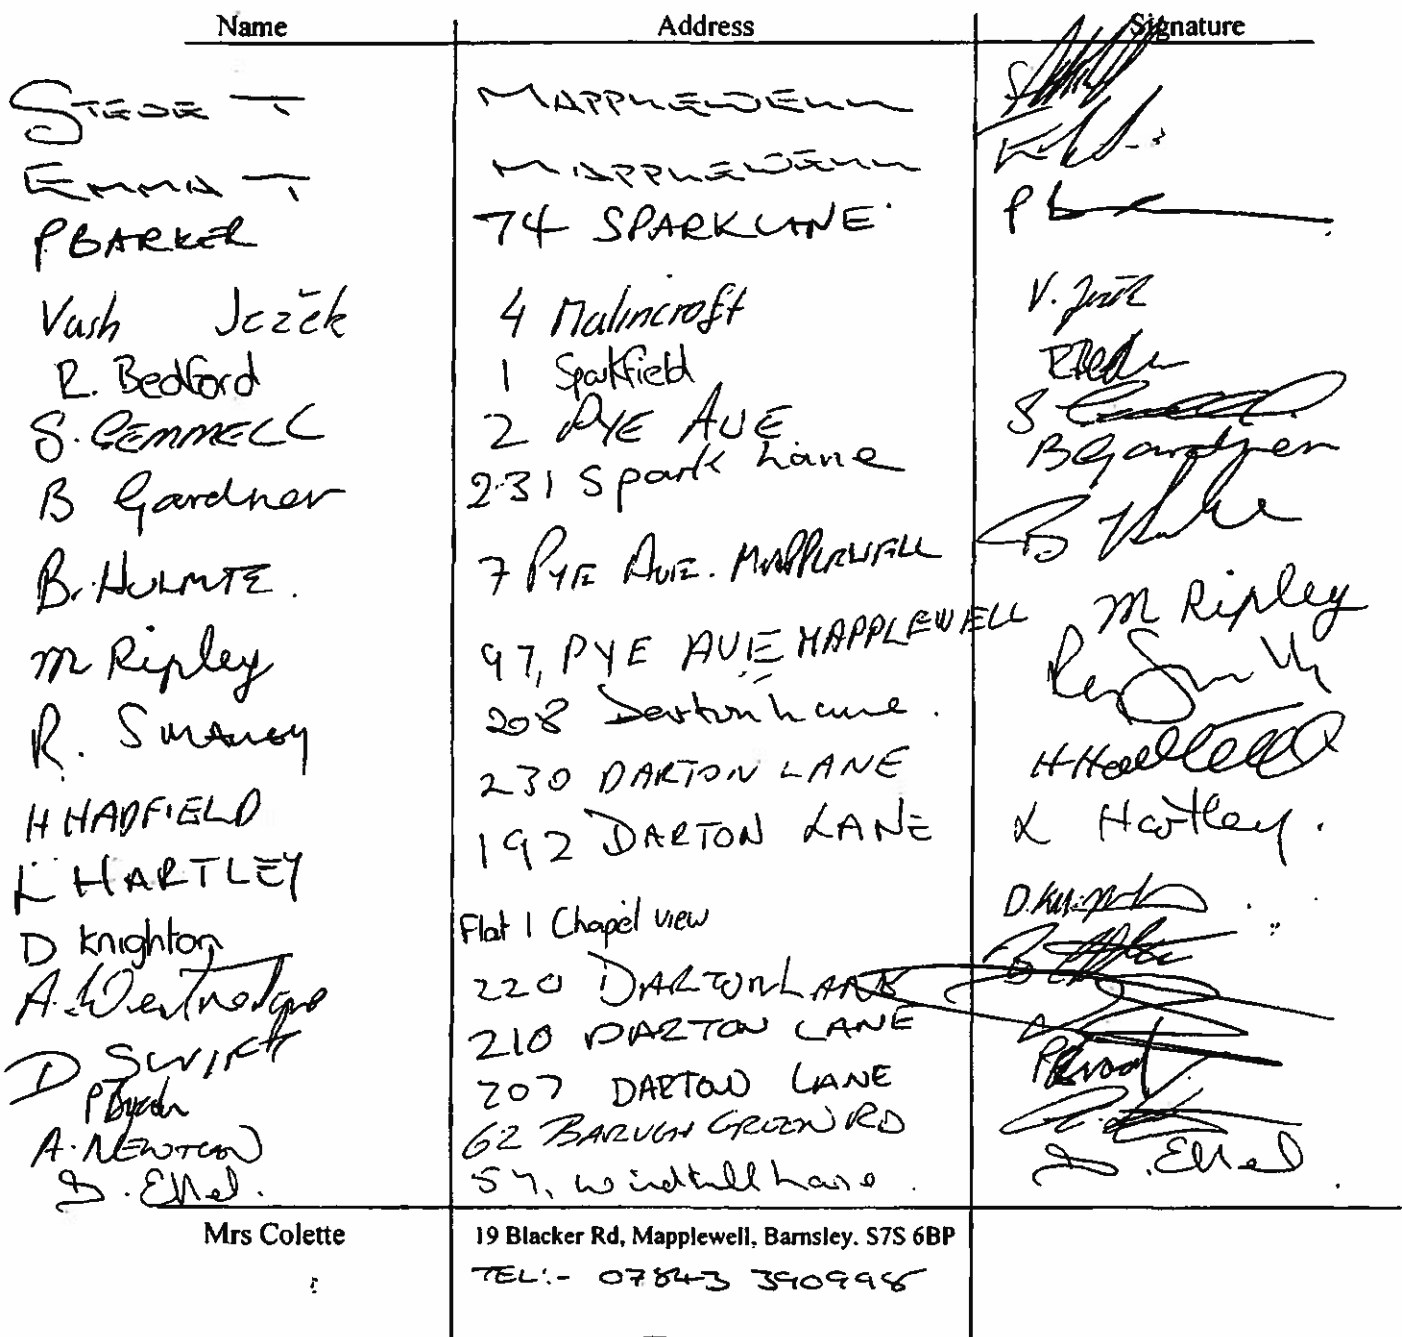 Name Address Signature
STEVE T MAPPLEWELL
EMMA T MAPPLEWELL
P BARKER 74 SPARK LANE P B
Vash Jezek 4 Malincroft V. Jezek
R. Bedford 1 Sparkfield
S. GEMMELL 2 PYE AVE S
B Gardner 231 Spark Lane B Gardner
B. HULMTE. 7 PYE AVE. MAPPLEWELL B
M Ripley 97, PYE AVE MAPPLEWELL M Ripley
R. SMALLEY 208 Darton Lane.
H HADFIELD 230 DARTON LANE H Hadfield
L HARTLEY 192 DARTON LANE L Hartley.
D Knighton Flat 1 Chapel view D. Knighton
A. 220 DARTON LANE
D SWIFT 210 DARTON LANE
P 207 DARTON LANE P
A. NEWTON 62 BARUGH GREEN RD
57, Windhill Lane.
Mrs Colette 19 Blacker Rd, Mapplewell, Barnsley. S75 6BP
TEL:- 07843 390998